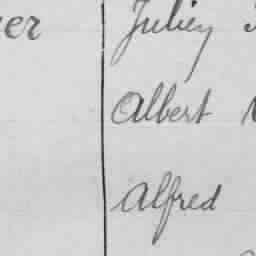 er Juliey
Albert
Alfred